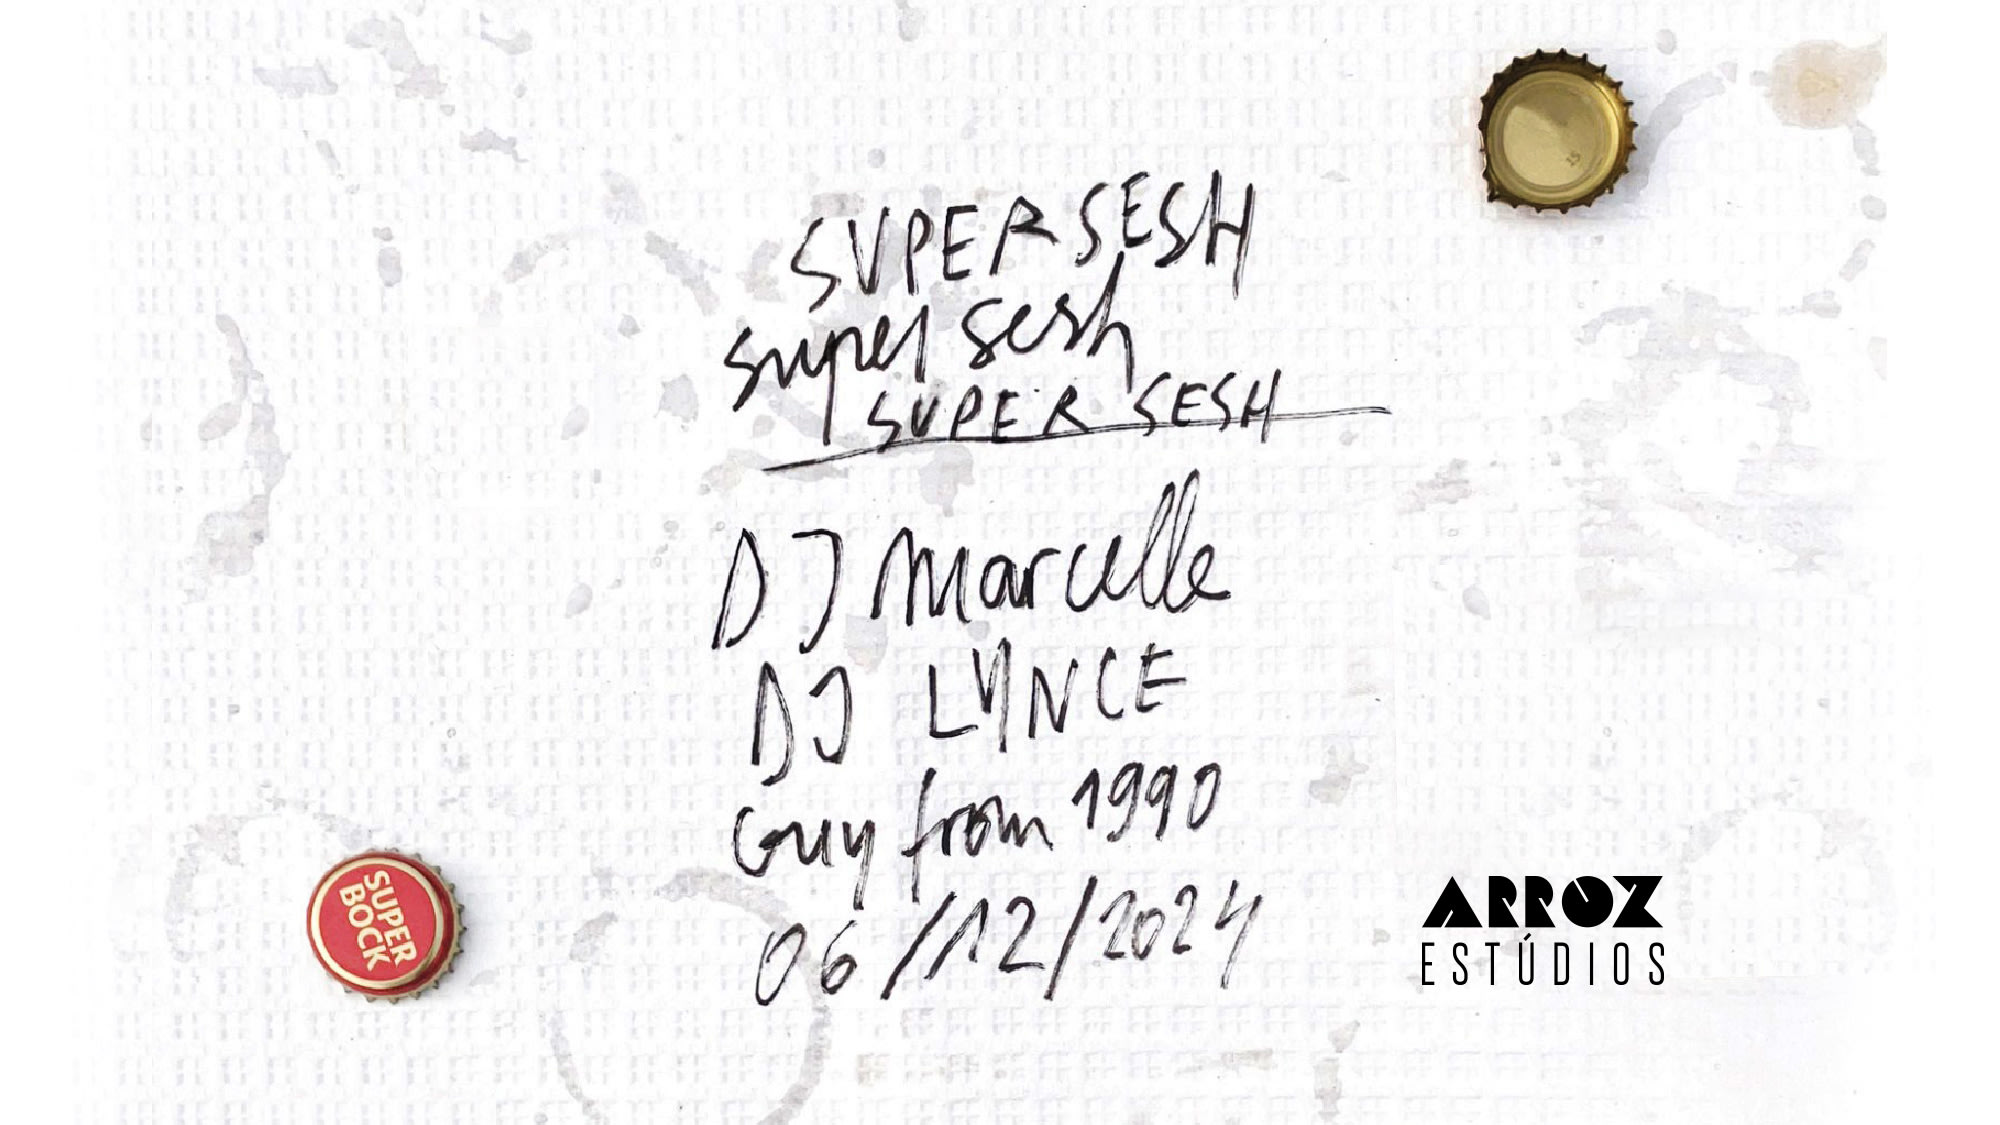 SUPER SESH
super sesh
SUPER SESH
DJ Marcelle
DJ LYNCE
Guy from 1990
06/12/2024
SUPER
BOCK
ARROZ
ESTÚDIOS
15